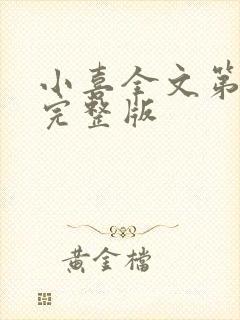 小喜全文第
完整版
黄金檔